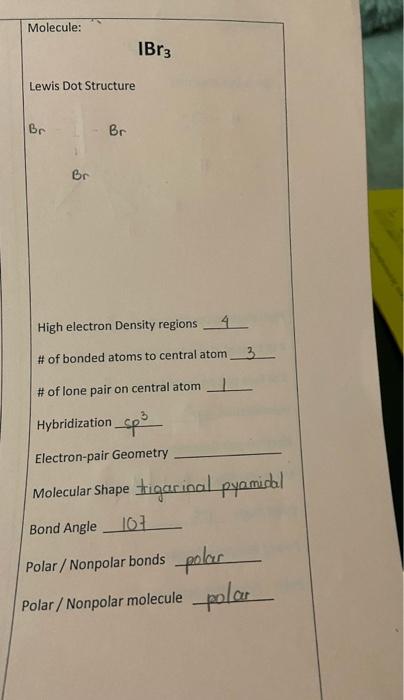 Molecule:
IBr3
Lewis Dot Structure
Br Br
Br
High electron Density regions 4
# of bonded atoms to central atom 3
# of lone pair on central atom 1
Hybridization sp³
Electron-pair Geometry
Molecular Shape trigarinal pyamidal
Bond Angle 107
Polar / Nonpolar bonds polar
Polar / Nonpolar molecule polar